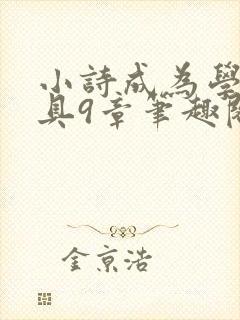 小詩成為學
具9章筆趣閱
金京浩